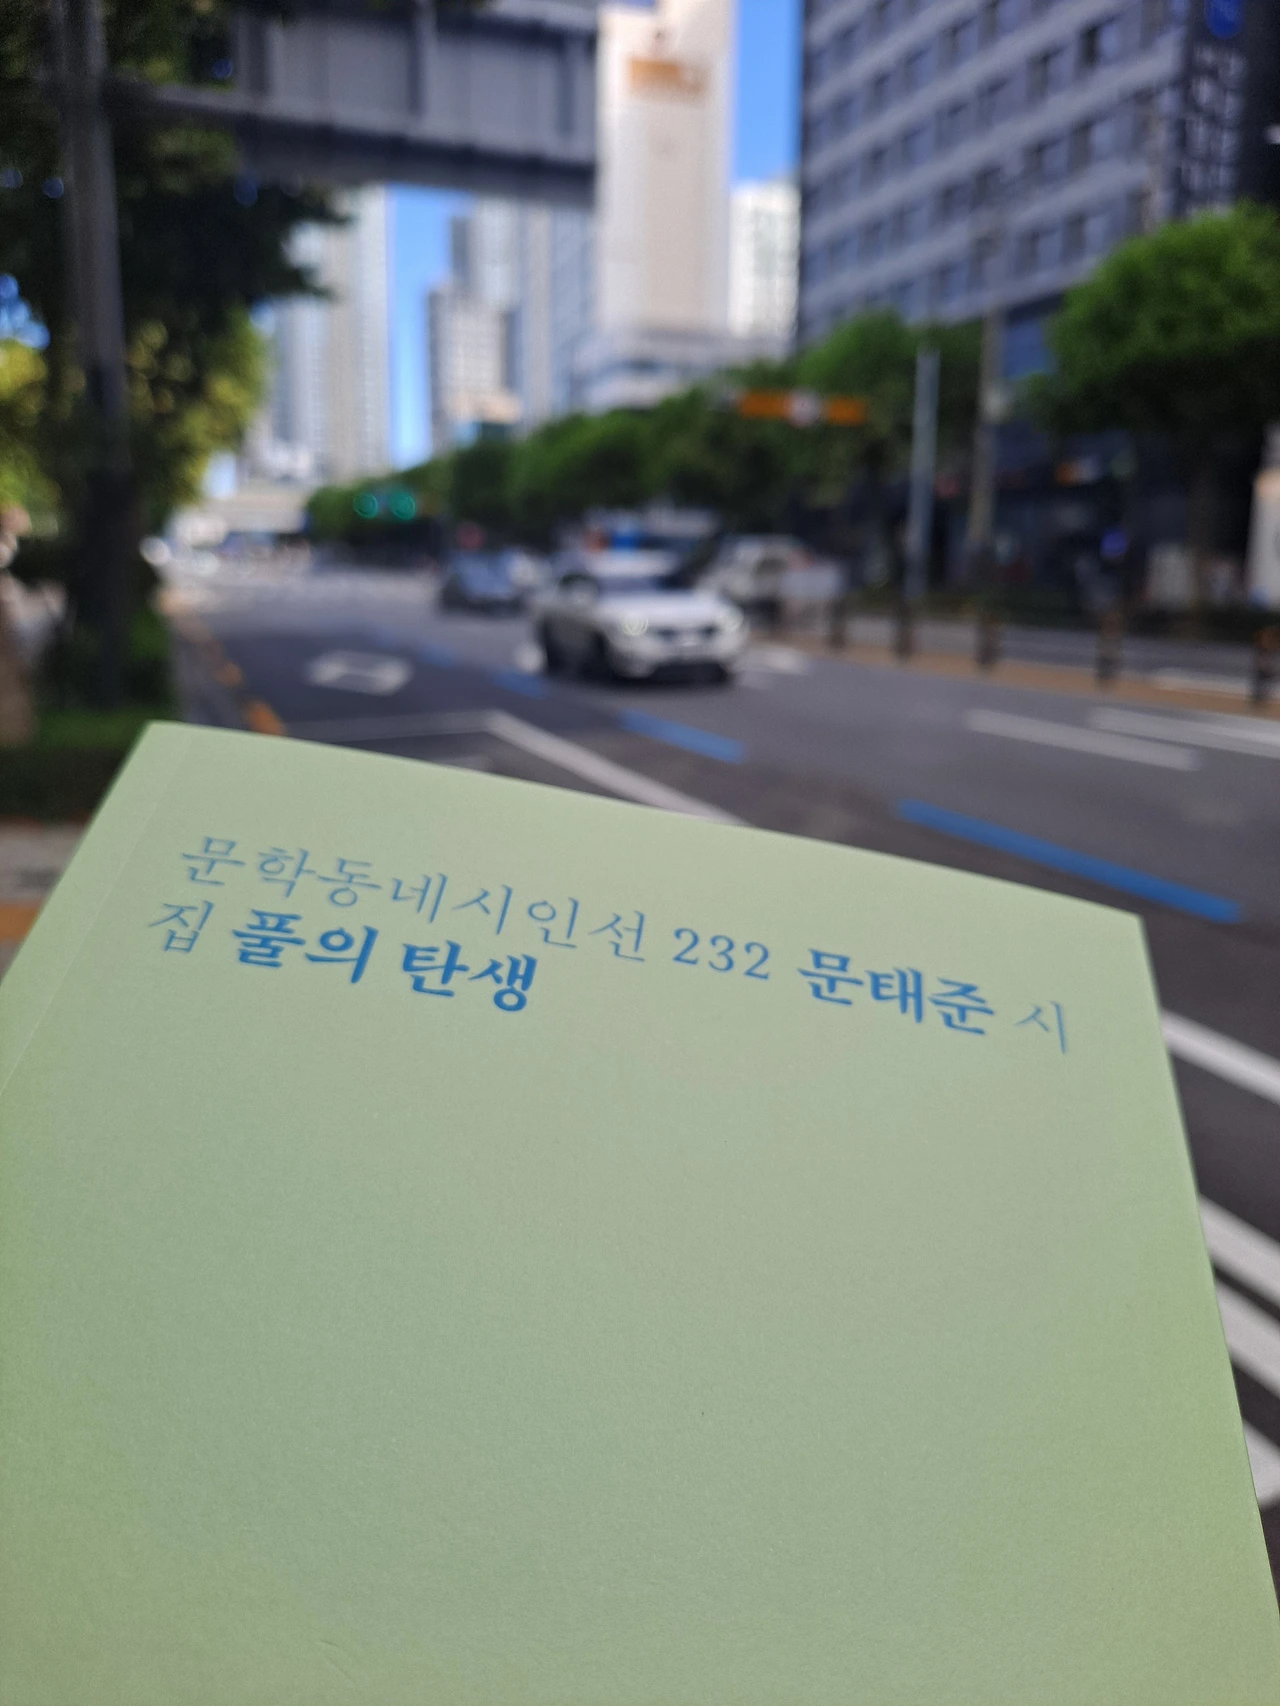 문학동네시인선 232 문태준 시
집 풀의 탄생